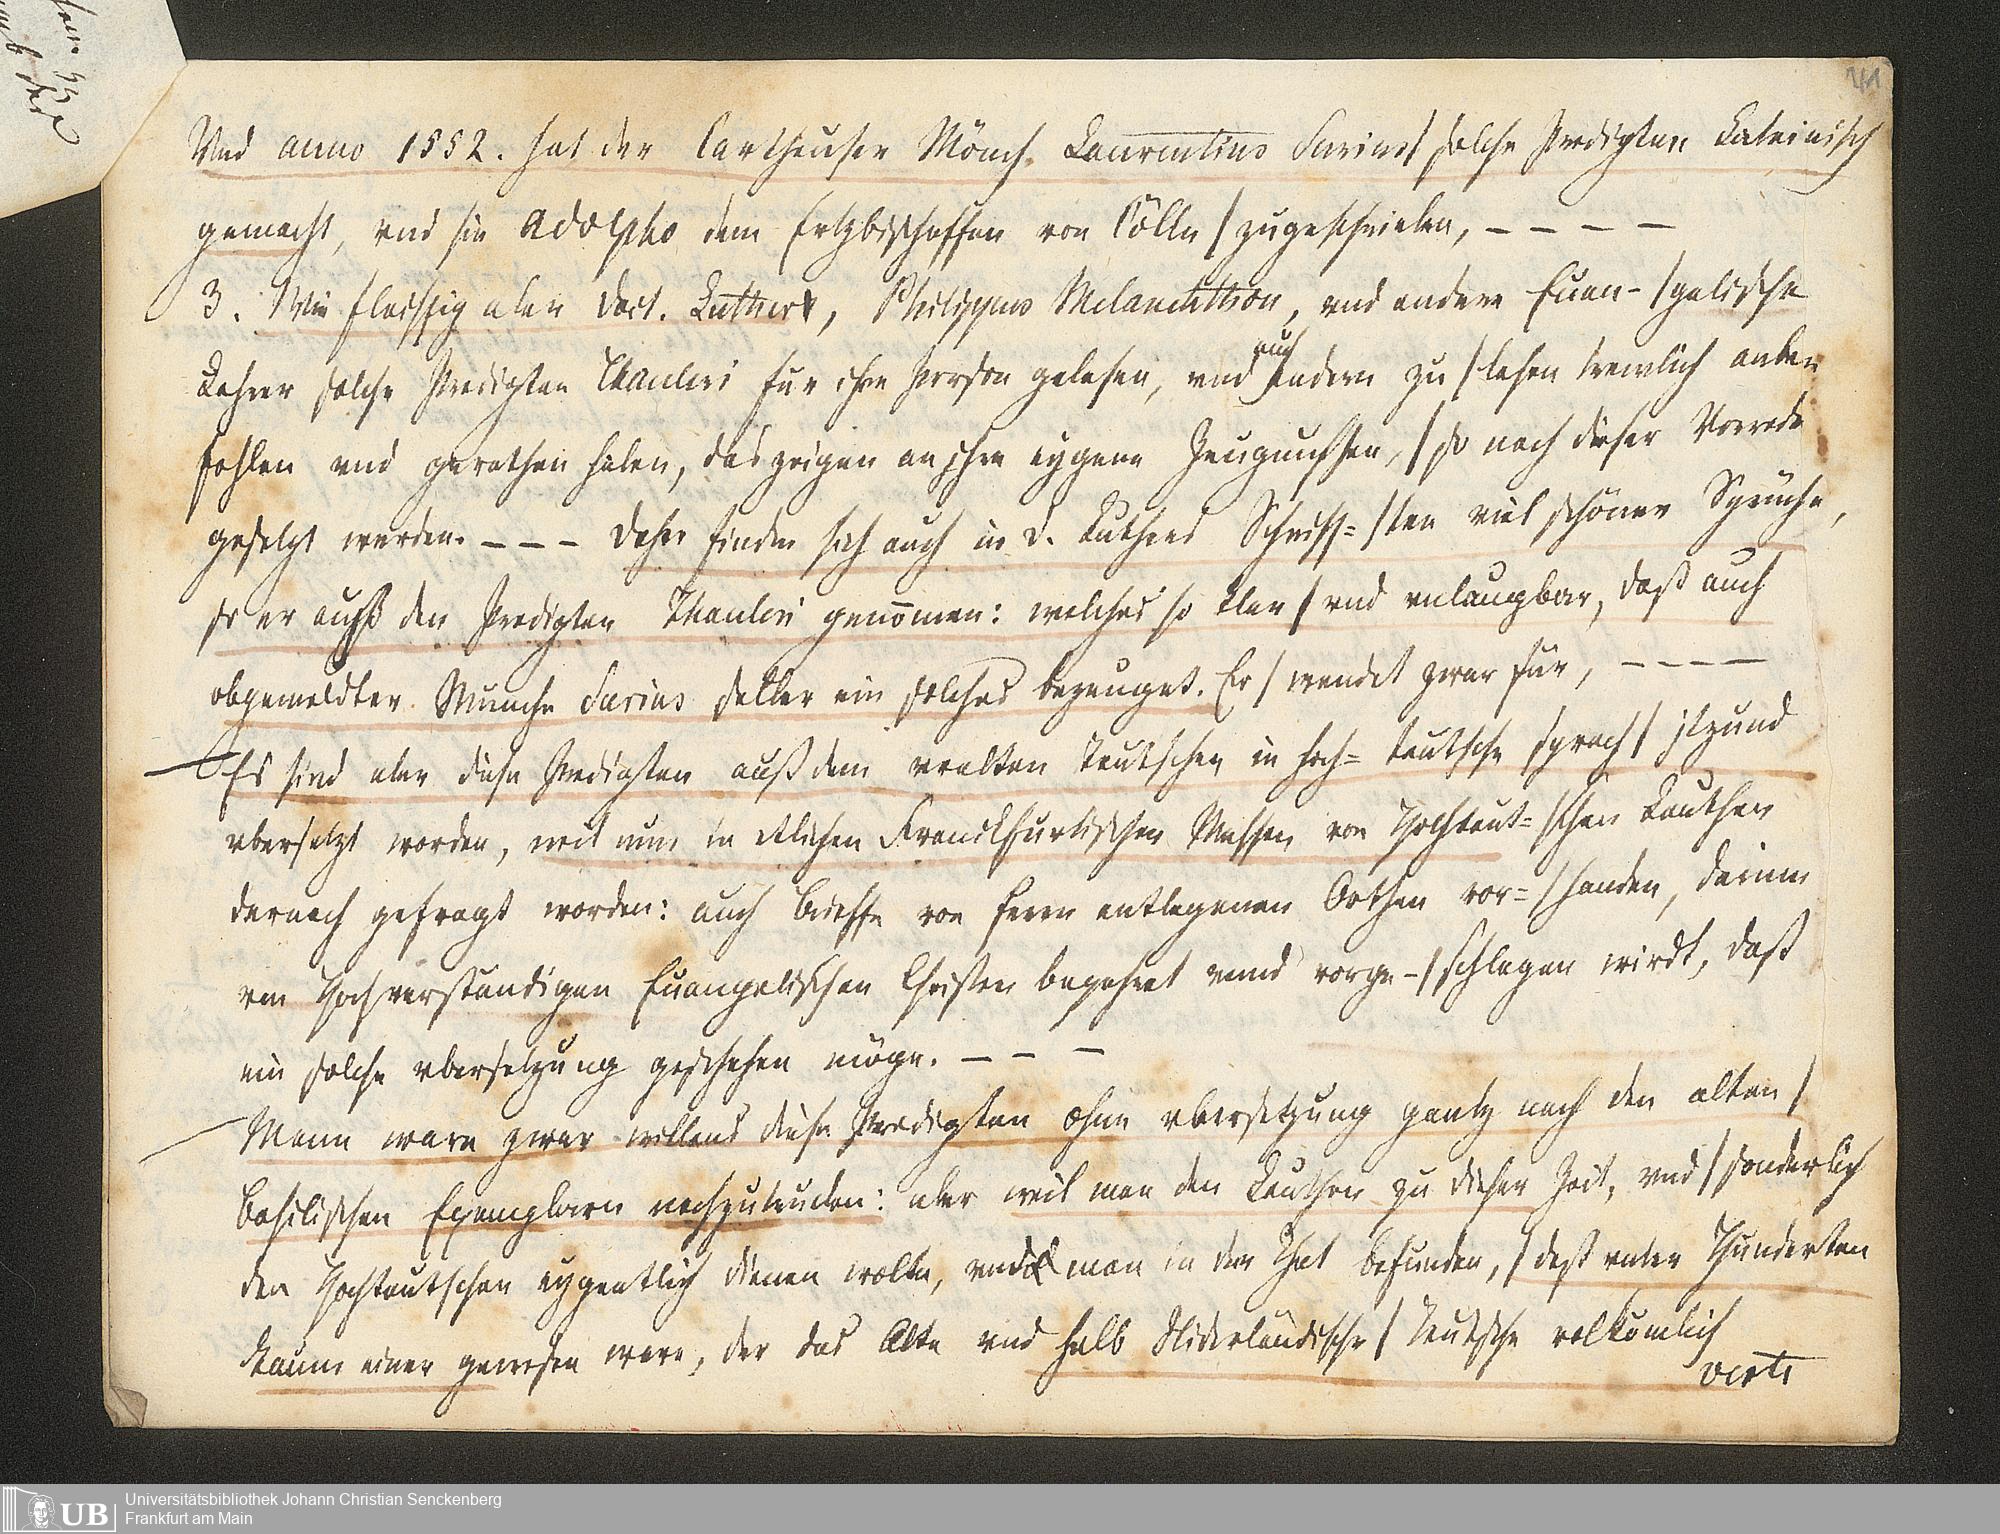 41
Vnd anno 1552. hat der Cartheuser Mönch Laurentius Surius / solche Predigten Lateinisch
gemacht, vnd sie Adolpho dem Ertzbischoffen von Cölln / zugeschrieben, – – – –
3. Wie fleissig aber Doct. Luther, Philippus Melanchthon, vnd andere Euan- / gelische
Lehrer solche Predigten Thauleri für ihre Person gelesen, vnd auch andern zu / lesen trewlich anbe-
fohlen vnd gerathen haben, das zeigen an ihre eygene Zeugnussen, / so nach dieser Vorrede
gesetzt werden. – – – Daher finden sich auch in D. Luthers Schriff- / ten viel schöner Sprüche,
so er auß den Predigten Thauleri genommen: welches so klar / vnd vnlaugbar, daß auch
obgemeldter Münche Surius selber ein solches bezeuget. Er / wendet zwar für, – – – –
Es sind aber diese Predigten auß dem vralten Teutschen in hoch= teutsche sprach / jtzund
vbersetzt worden, weil nun in etlichen Franckfurtischen Messen von Hochteut= / schen Leuthen
darnach gefragt worden: auch Brieffe von fern entlegenen Orthen vor= / handen, darinn
von Hochverständigen Euangelischen Christen begehret vnnd vorge- / schlagen wirdt, daß
ein solche vbersetzung geschehen möge. – – –
Mann ware zwar willens diese Predigten ohne vbersetzung gantz nach den alten /
Basilischen Exemplarn nachzutrucken: aber weil man den Leuthen zu dieser Zeit, vnd / sonderlich
den Hochteutschen eygentlich dienen wolte, vnd man in der That befunden, / daß vnter Hunderten
kaum einer gewesen were, der das Alte vnd halb Niderländische / Teutsche volkömlich
verte
Universitätsbibliothek Johann Christian Senckenberg
Frankfurt am Main
UB